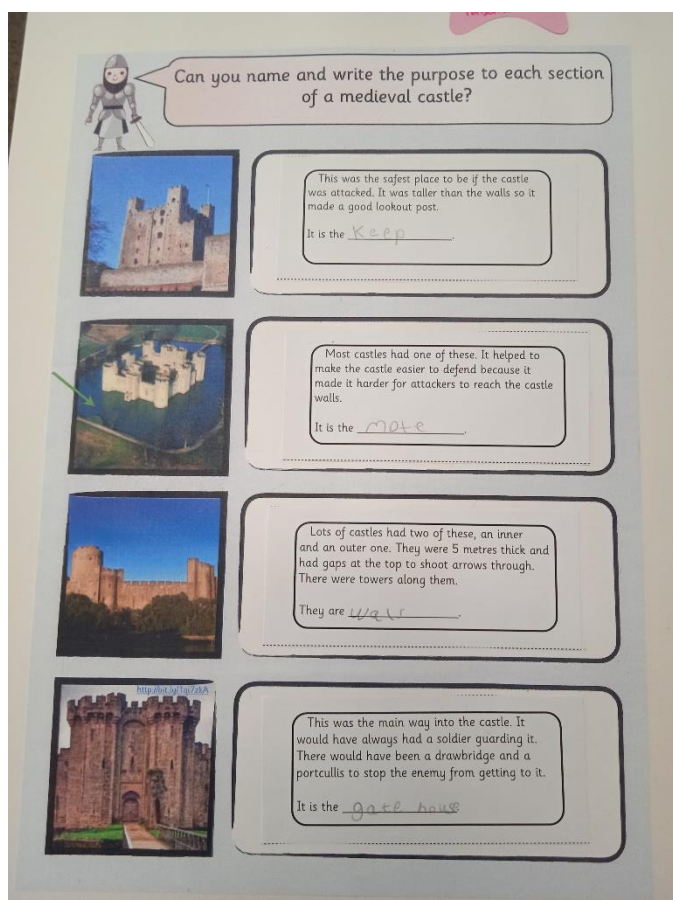 Can you name and write the purpose to each section
of a medieval castle?
This was the safest place to be if the castle
was attacked. It was taller than the walls so it
made a good lookout post.
It is the Keep.
Most castles had one of these. It helped to
make the castle easier to defend because it
made it harder for attackers to reach the castle
walls.
It is the mote.
Lots of castles had two of these, an inner
and an outer one. They were 5 metres thick and
had gaps at the top to shoot arrows through.
There were towers along them.
They are
http://bit.ly/1qi7zkA
This was the main way into the castle. It
would have always had a soldier guarding it.
There would have been a drawbridge and a
portcullis to stop the enemy from getting to it.
It is the gate house